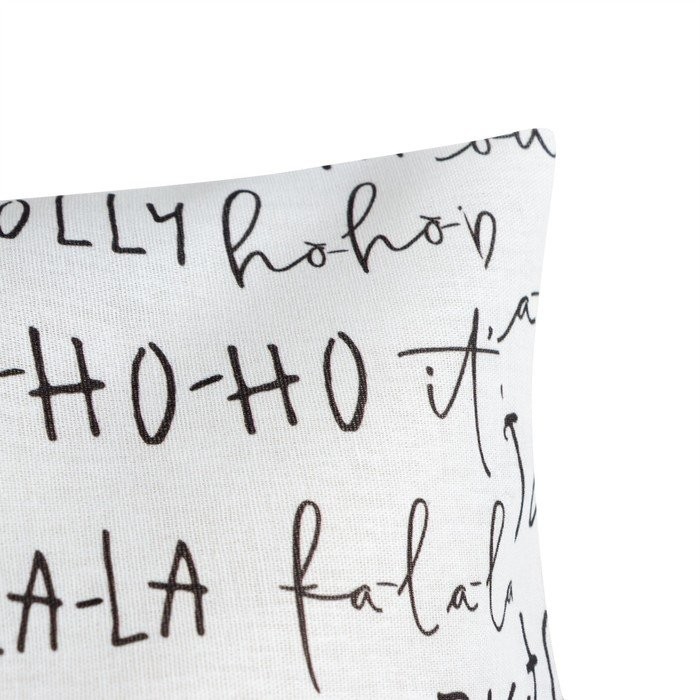 OLLY ho-ho-h
-HO-HO it'
A-LA fa-la-la